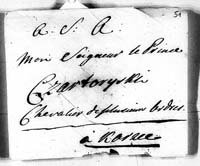 A. S. A.
51
Mon Seigneur le Prince
Czartoryski
Chevalier de plusieurs Ordres
à